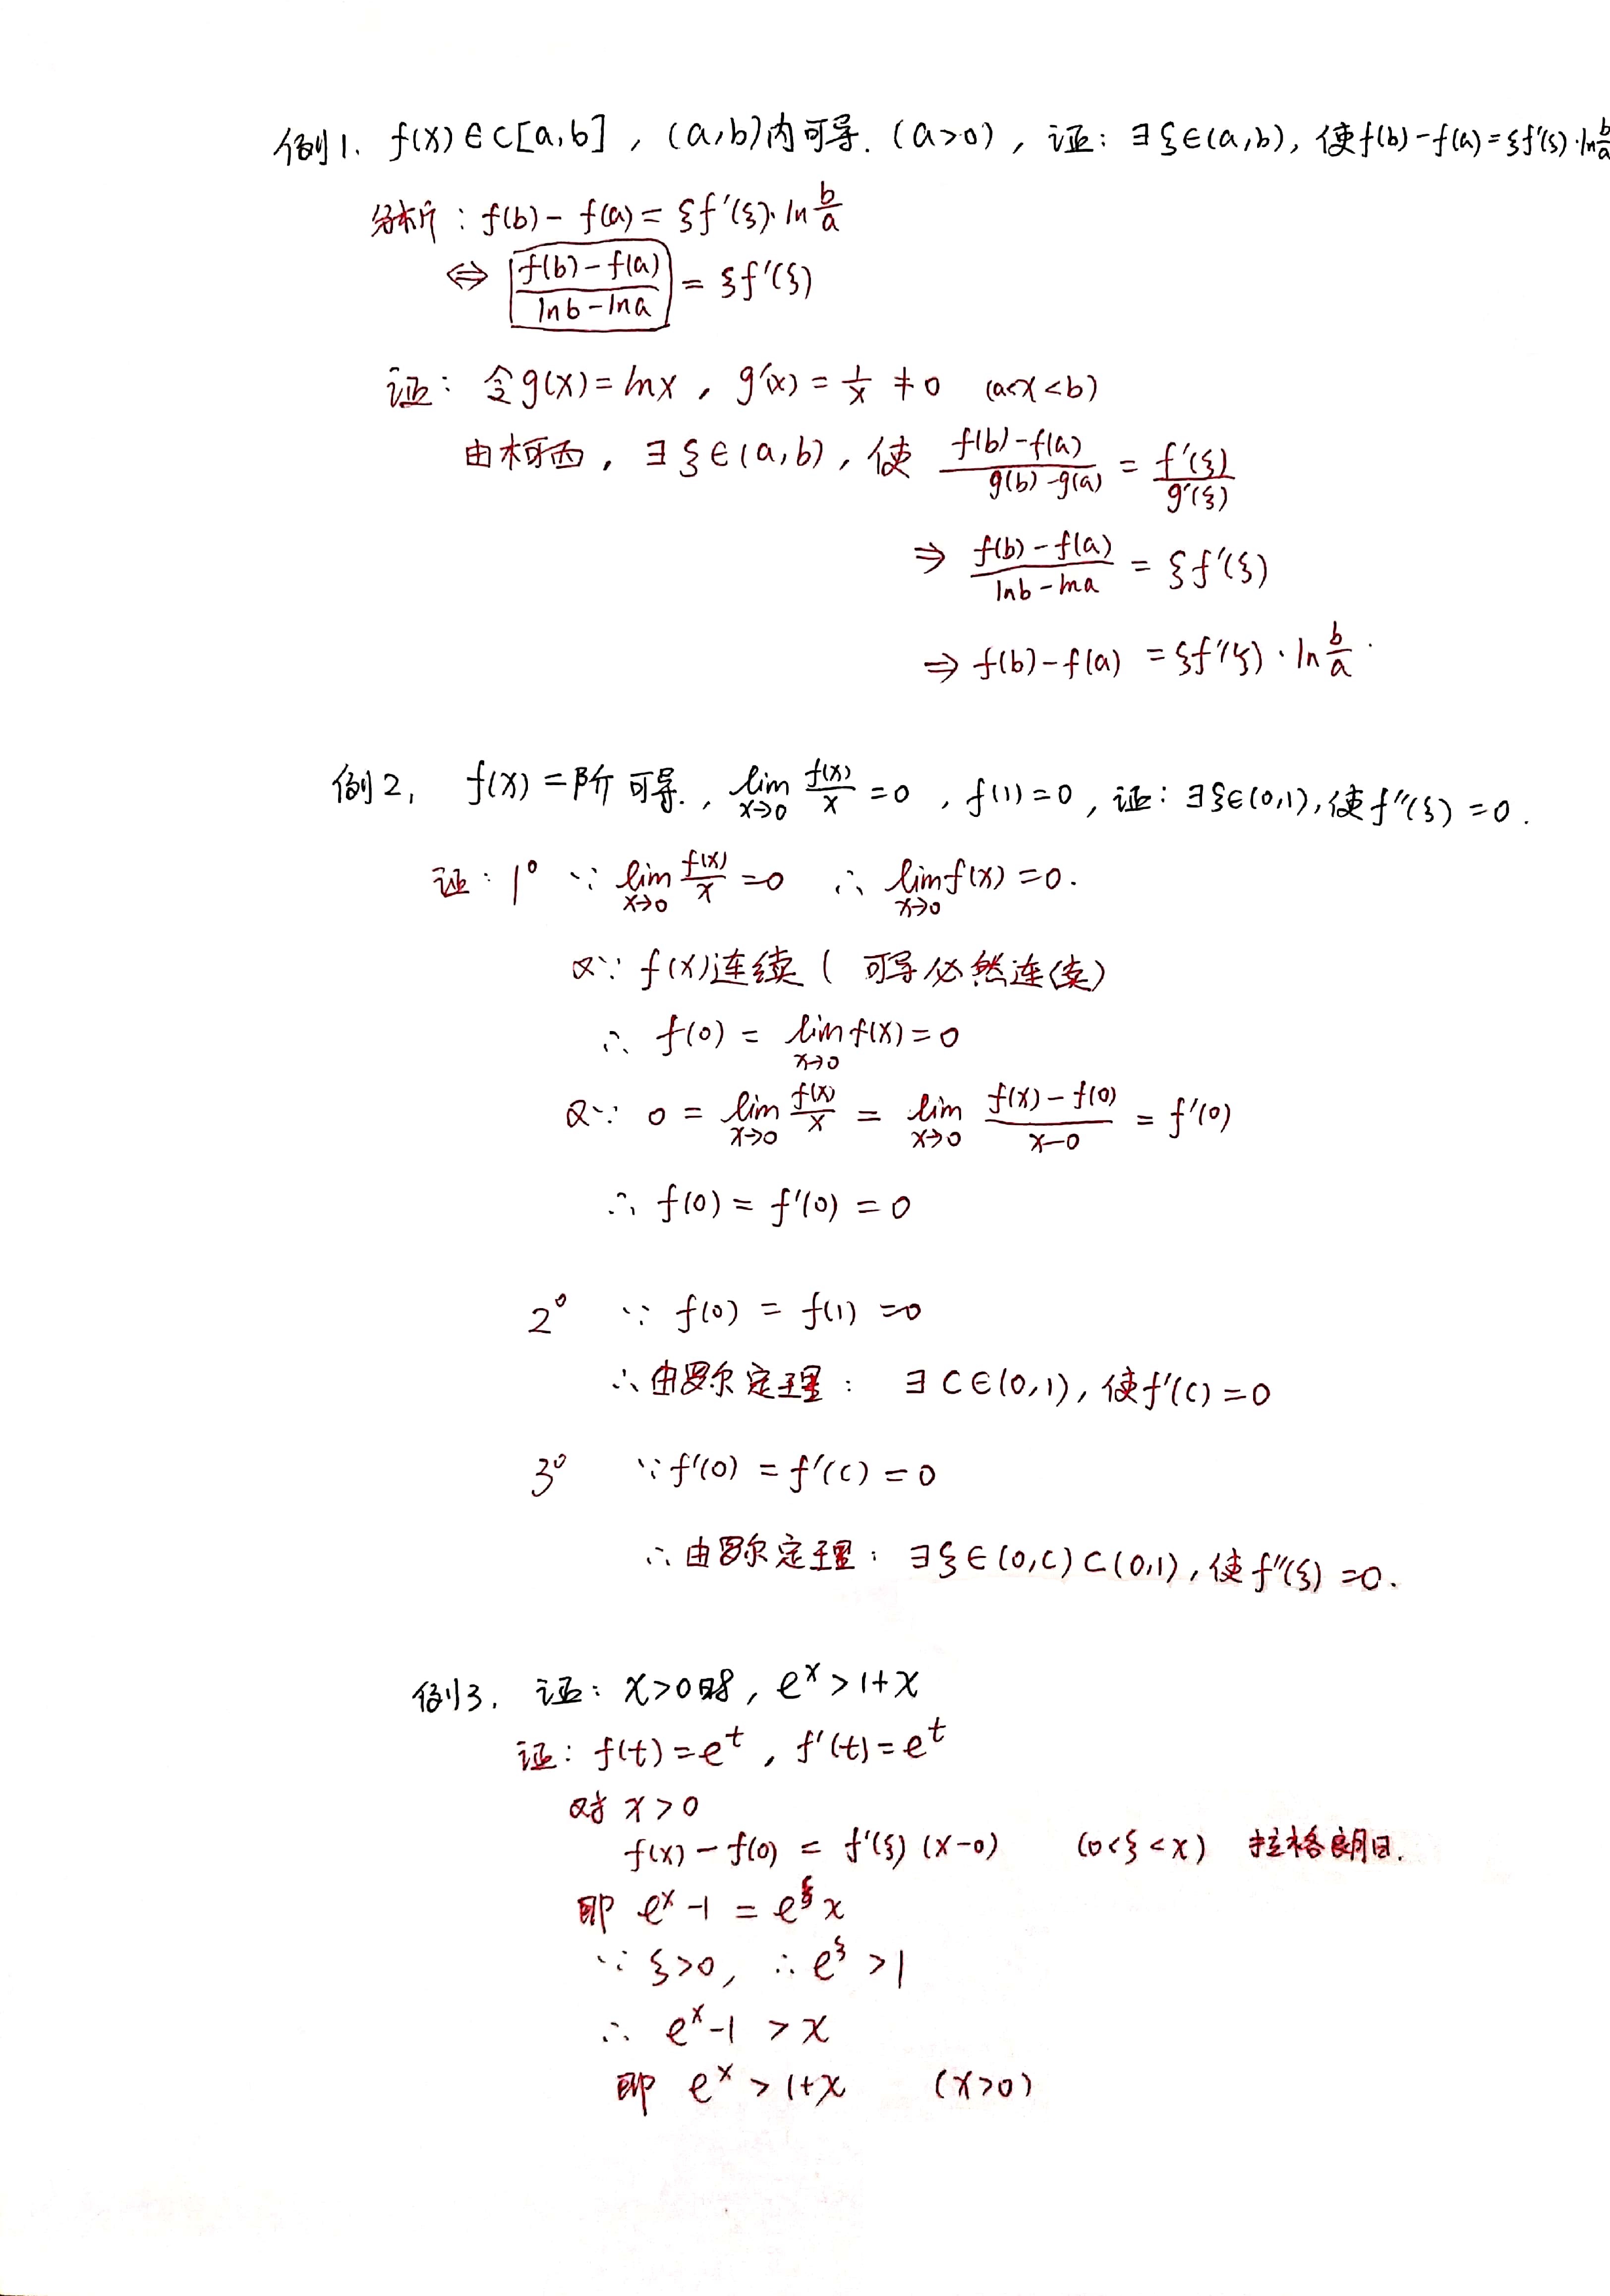 例1. f(x)∈C[a,b], (a,b)内可导. (a>0), 证: ∃ξ∈(a,b), 使f(b)-f(a)=ξf'(ξ)·ln b/a
分析: f(b)-f(a)=ξf'(ξ)·ln b/a
⇔ (f(b)-f(a))/(lnb-lna) = ξf'(ξ)
证: 令g(x)=lnx, g'(x)=1/x ≠0 (a<x<b)
由柯西, ∃ξ∈(a,b), 使 (f(b)-f(a))/(g(b)-g(a)) = f'(ξ)/g'(ξ)
⇒ (f(b)-f(a))/(lnb-lna) = ξf'(ξ)
⇒ f(b)-f(a) =ξf'(ξ)·ln b/a.
例2, f(x)二阶可导., lim x→0 f(x)/x =0, f(1)=0, 证: ∃ξ∈(0,1),使f''(ξ)=0.
证: 1° ∵ lim x→0 f(x)/x =0 ∴ lim x→0 f(x)=0.
又∵ f(x)连续(可导必然连续)
∴ f(0) = lim x→0 f(x)=0
又∵ 0 = lim x→0 f(x)/x = lim x→0 (f(x)-f(0))/(x-0) = f'(0)
∴ f(0)=f'(0)=0
2° ∵ f(0) = f(1) =0
∴由罗尔定理: ∃C∈(0,1), 使f'(C)=0
3° ∵f'(0)=f'(C)=0
∴由罗尔定理: ∃ξ∈(0,C)⊂(0,1),使f''(ξ)=0.
例3. 证: x>0时, e^x>1+x
证: f(t)=e^t, f'(t)=e^t
对 x>0
f(x)-f(0) = f'(ξ)(x-0) (0<ξ<x) 拉格朗日.
即 e^x-1 = e^ξ x
∵ ξ>0, ∴ e^ξ >1
∴ e^x-1 >x
即 e^x >1+x (x>0)